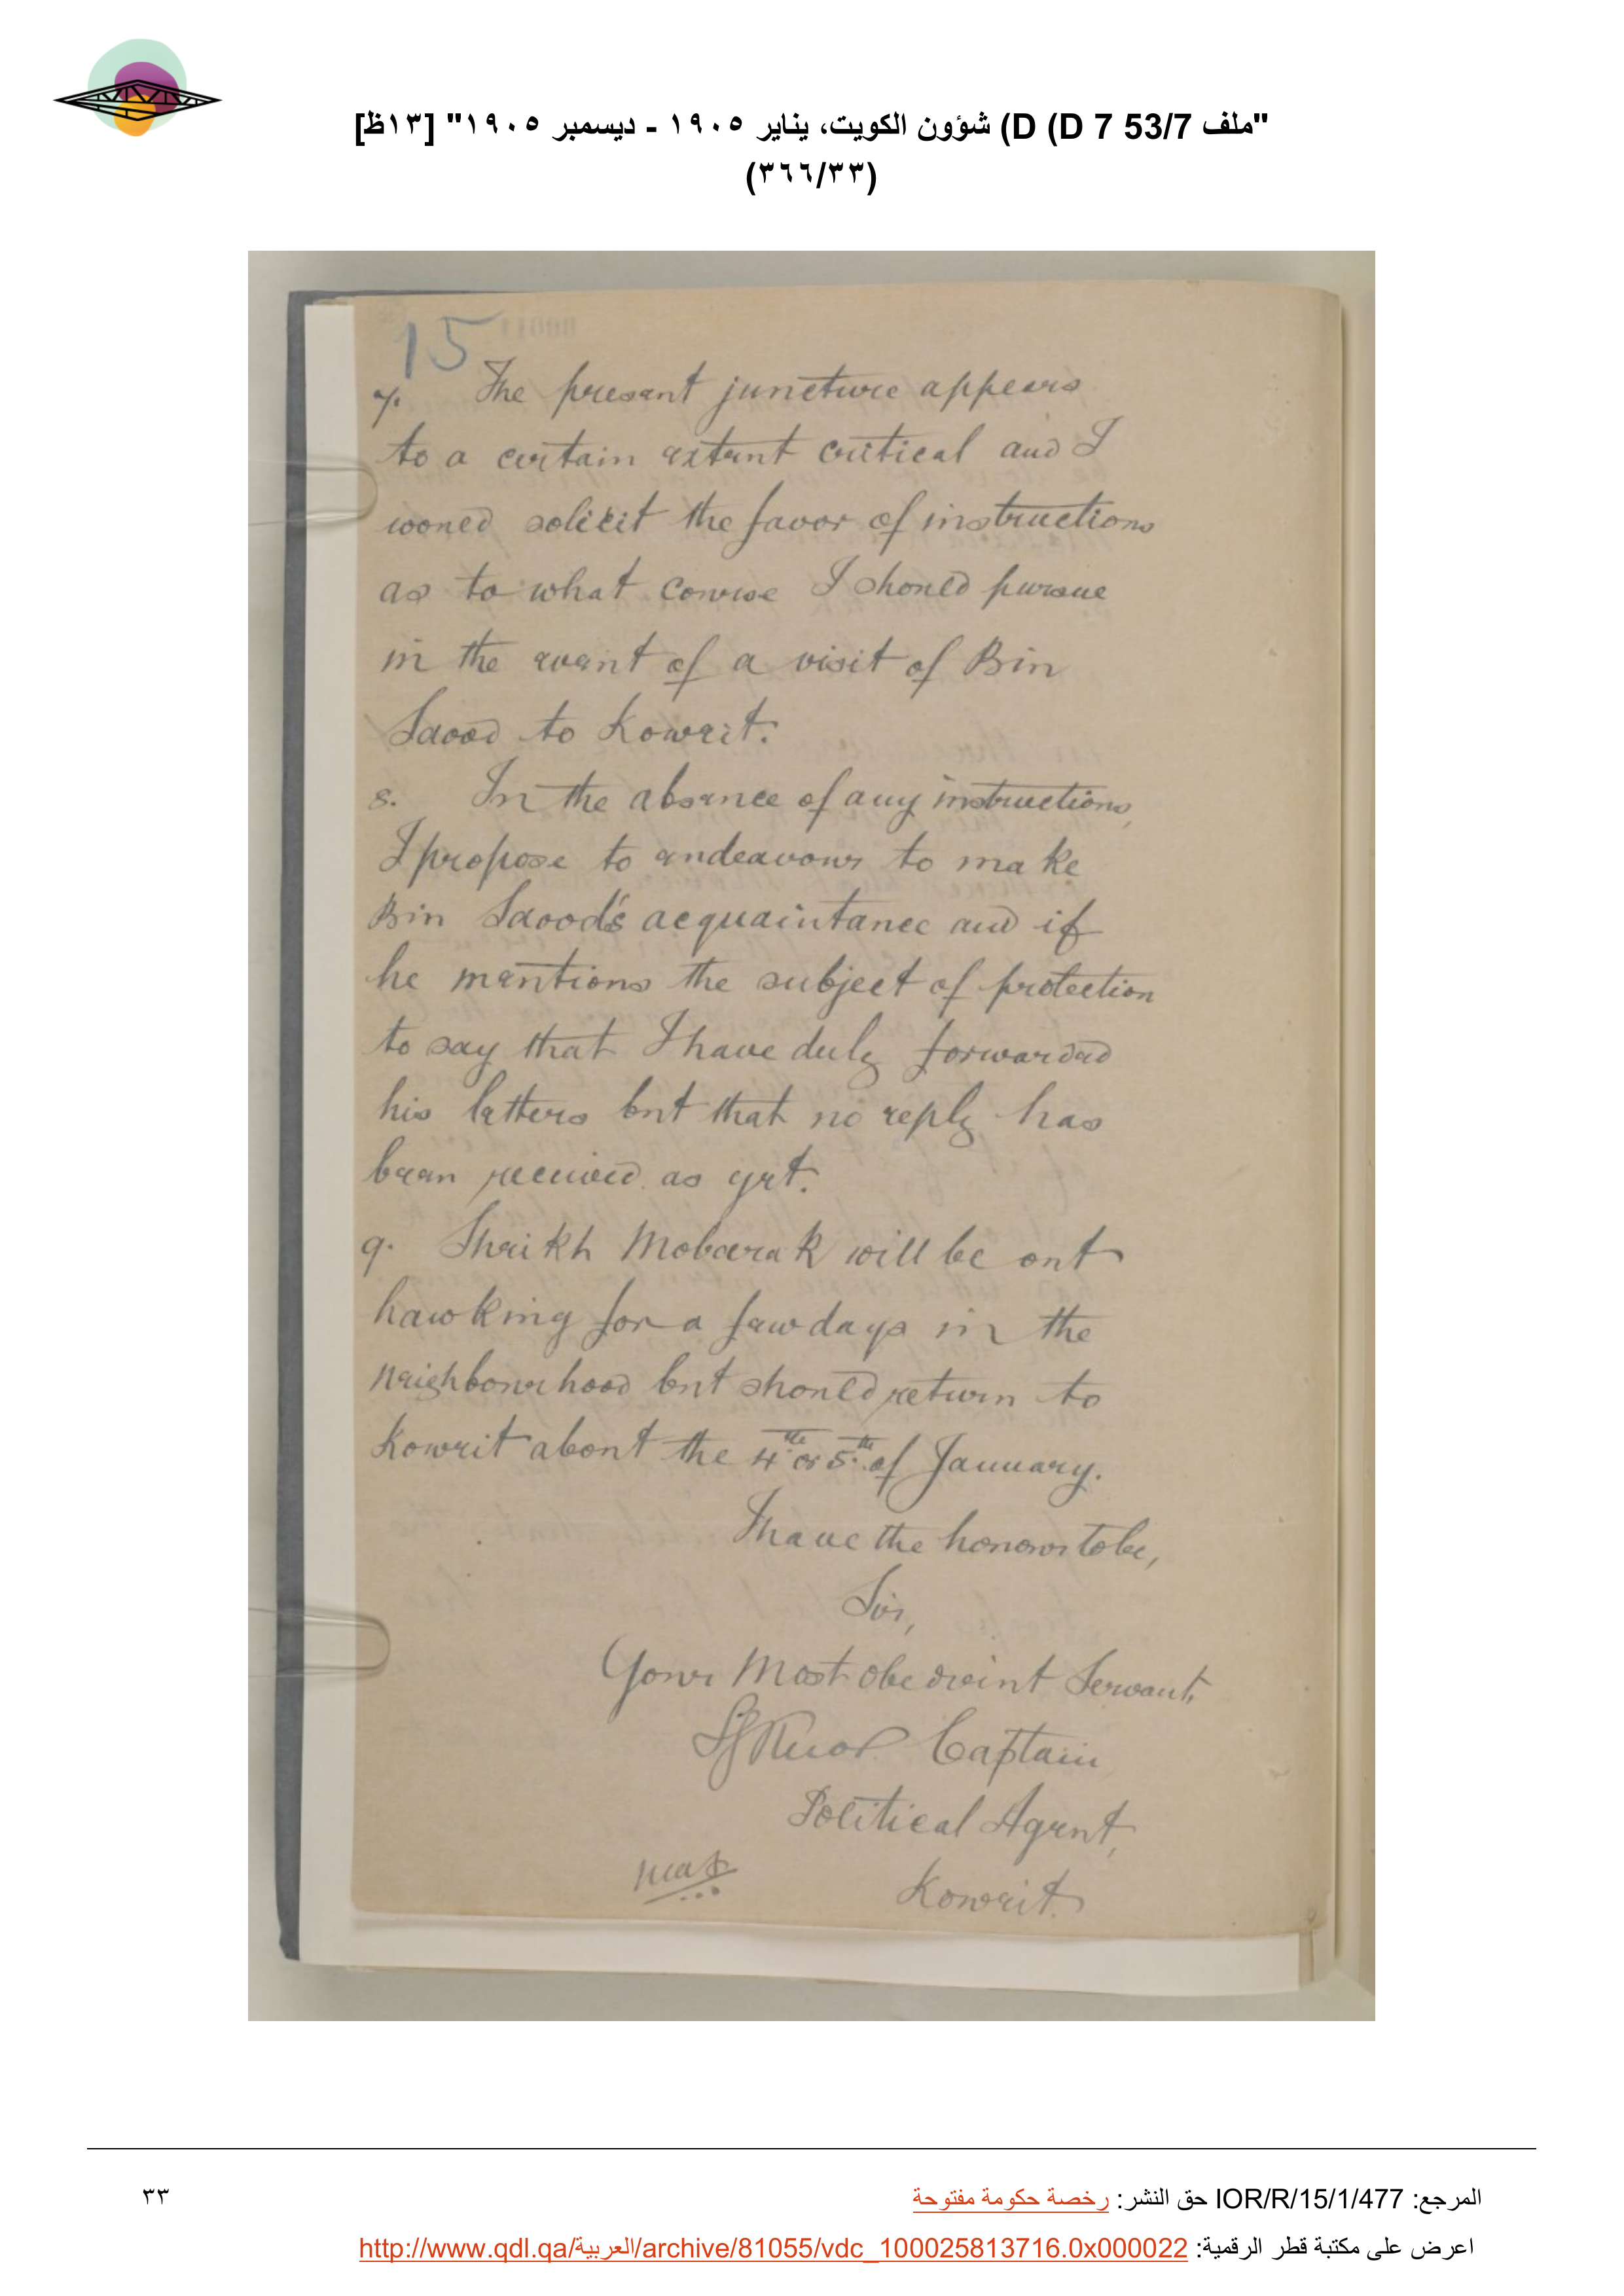 "ملف 53/7 D 7) D) شؤون الكويت، يناير ١٩٠٥ - ديسمبر ١٩٠٥" [١٣ظ]
(٣٦٦/٣٣)
15
7. The present juncture appears
to a certain extent critical and I
would solicit the favor of instructions
as to what course I should pursue
in the event of a visit of Bin
Saood to Koweit.
8. In the absence of any instructions,
I propose to endeavour to make
Bin Saood's acquaintance and if
he mentions the subject of protection
to say that I have duly forwarded
his letters but that no reply has
been received as yet.
9. Shaikh Mobarak will be out
hawking for a few days in the
neighbourhood but should return to
Koweit about the 4th or 5th of January.
I have the honour to be,
Sir,
Your Most obedient Servant,
SGKnox Captain
Political Agent,
Koweit.
المرجع: IOR/R/15/1/477 حق النشر: رخصة حكومة مفتوحة
٣٣
اعرض على مكتبة قطر الرقمية: http://www.qdl.qa/العربية/archive/81055/vdc_100025813716.0x000022